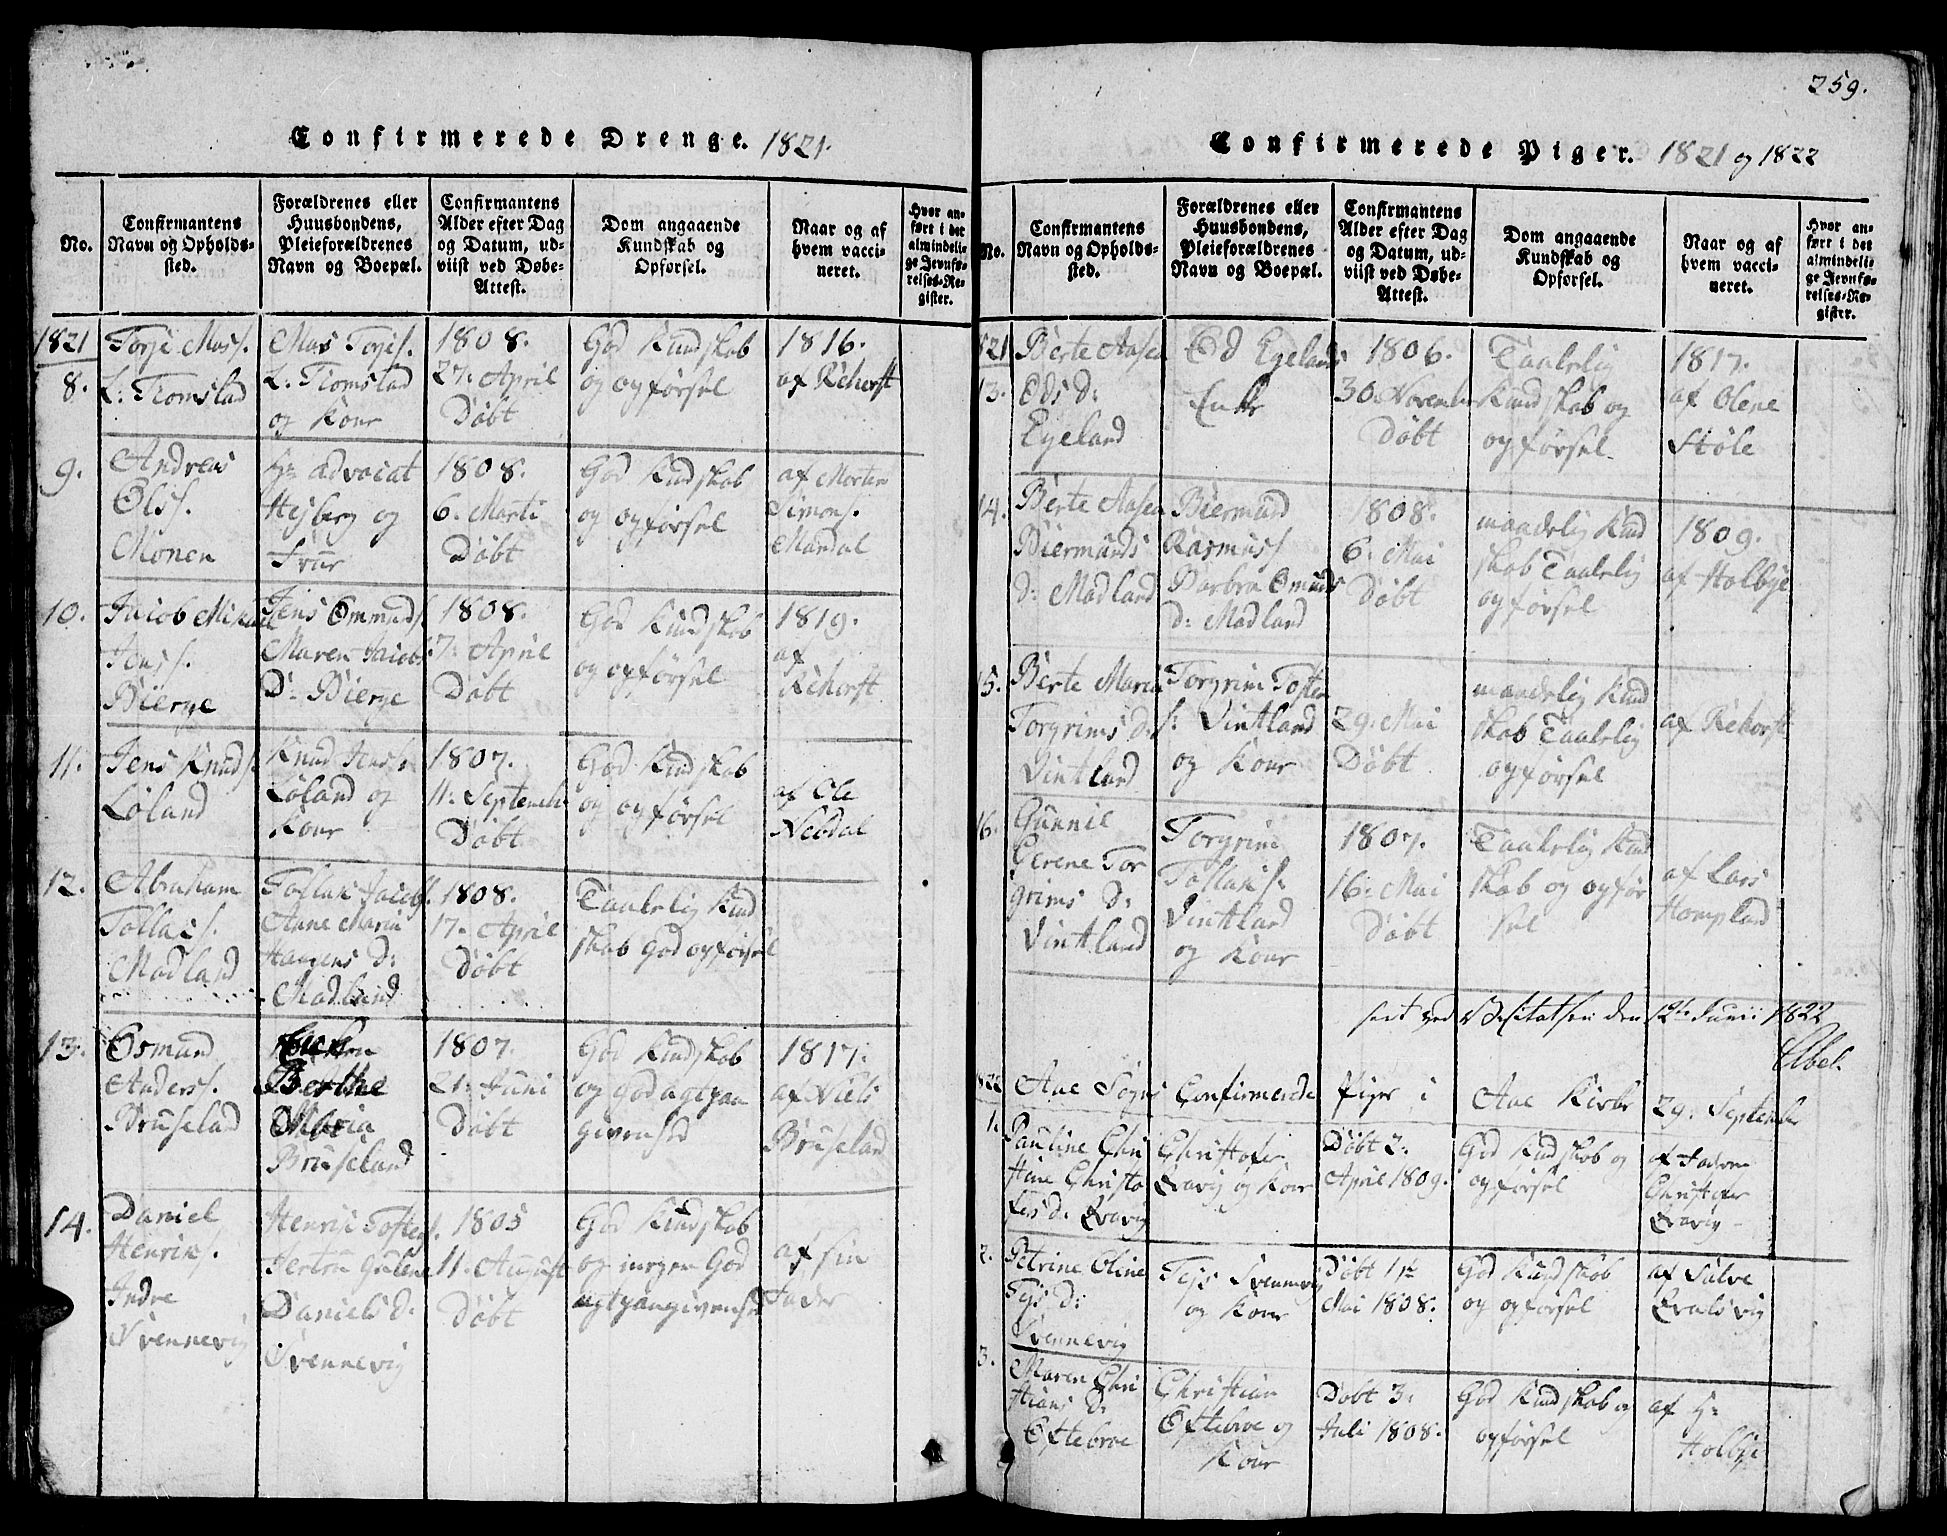 Confirmerede Drenge. 1821.
No.
Confirmantens
Navn og Opholds-
sted.
Forældrenes eller
Huusbondens,
Pleieforældrenes
Navn og Boepæl.
Confirmantens
Alder efter Dag
og Datum, ud-
viist ved Døbe-
Attest.
Dom angaaende
Kundskab og
Opførsel.
Naar og af
hvem vacci-
neret.
Hvor an-
ført i det
almindeli-
ge Jevnfø-
relses-Re-
gister.
1821
8.
Torje Mass.
L: Tiomstad
Mas Torjes.
L: Tiomstad
og Kone
1808.
27. April
Døbt
God Kundskab
og opførsel
1816.
af Rehorst
9.
Andreas
Olss.
Monen
Hr advocat
Hejberg og
Frue
1808.
6. Marti
Døbt
God Kundskab
og opførsel
af Morten
Simons.
Mandal
10.
Jacob Mikael
Jenss.
Bierge
Jens Ommunds.
Maren Jacobs
D: Bierge
1808.
7. April
Døbt
God Kundskab
og opførsel
1819.
af
Rehorst
11.
Jens Knuds.
Løland
Knud Jenss.
Løland og
Kone
1807.
11. September
Døbt
God Kundskab
og opførsel
af Ole
Nebdal
12.
Abraham
Tollas.
Madland
Tollak Jacobs.
Anne Maria
Hagens D:
Madland
1808.
17. April
Døbt
Taalelig Kund
skab God opførsel
13.
Osmund
Anders.
Bruseland
Enken
Berthe
Maria
Bruseland
1807.
21. Juni
Døbt
God Kundskab
og god agtpaa
givenhed
1817.
af Niels
Bruseland
14.
Daniel
Henriks.
Indre
Svennevig
Henrik Tostens.
Jertru Gulene
Daniels D:
Svennevig
1805
11. August
Døbt
God Kundskab
og megen God
agtpaagivenhed
af sin
Fader
259.
Confirmerede Piger. 1821 og 1822
No.
Confirmantens
Navn og Opholds-
sted.
Forældrenes eller
Huusbondens,
Pleieforældrenes
Navn og Boepæl.
Confirmantens
Alder efter Dag
og Datum, ud-
viist ved Døbe-
Attest.
Dom angaaende
Kundskab og
Opførsel.
Naar og af
hvem vacci-
neret.
Hvor an-
ført i det
almindeli-
ge Jevnfø-
relses-Re-
gister.
1821
13.
Berte Aasen
Eds d:
Egeland
Ed Egelands
Enke
1806.
30. November
Døbt
Taalelig
Kundskab og
opførsel
1817.
af Olene
Støle
14.
Berte Aasen
Biermunds
d: Madland
Biermund
Rasmuss.
Barbra Omunds
d: Madland
1808.
6. Mai
Døbt
maadelig Kund
skab Taalelig
opførsel
1809.
af Holbye
15.
Berte Maria
Torgrims D:
Vintland
Torgrim Tosten
s: Vintland
og Kone
29. Mai
Døbt
maadelig Kund
skab Taalelig
opførsel
af Rehorst
16.
Gunnil
Serene Tor
grims D:
Vintland
Torgrim
Tollaks.
Vintland
og Kone
1807.
16. Mai
Døbt
Taalelig Kund
skab og opfør
sel
af Lars
Hompland
seet ved Visitatsen den 12te Junii 1822
Abel.
1822
Aae Sogns Confirmerede Piger i Aae Kirke 29. September
1.
Pauline Chri
stine Christo
fers d: Svavig
Christofer
Svavig og Kone
Døbt 2.
April 1809.
God Kundskab og
opførsel
af Faderen
Christofer
Svavig
2.
Petrine Oline
Tejs d:
Svennevig
Tejs Svennevig
og Kone
Døbt 1ste
Mai 1808.
God Kundskab
og opførsel
af Sulve
Svalsvig
3.
Maren Chri
stians D:
Eftebroe
Christian
Eftebroe og
Kone
Døbt 3.
Juli 1808.
God Kundskab og
opførsel
af Hr
Holbye